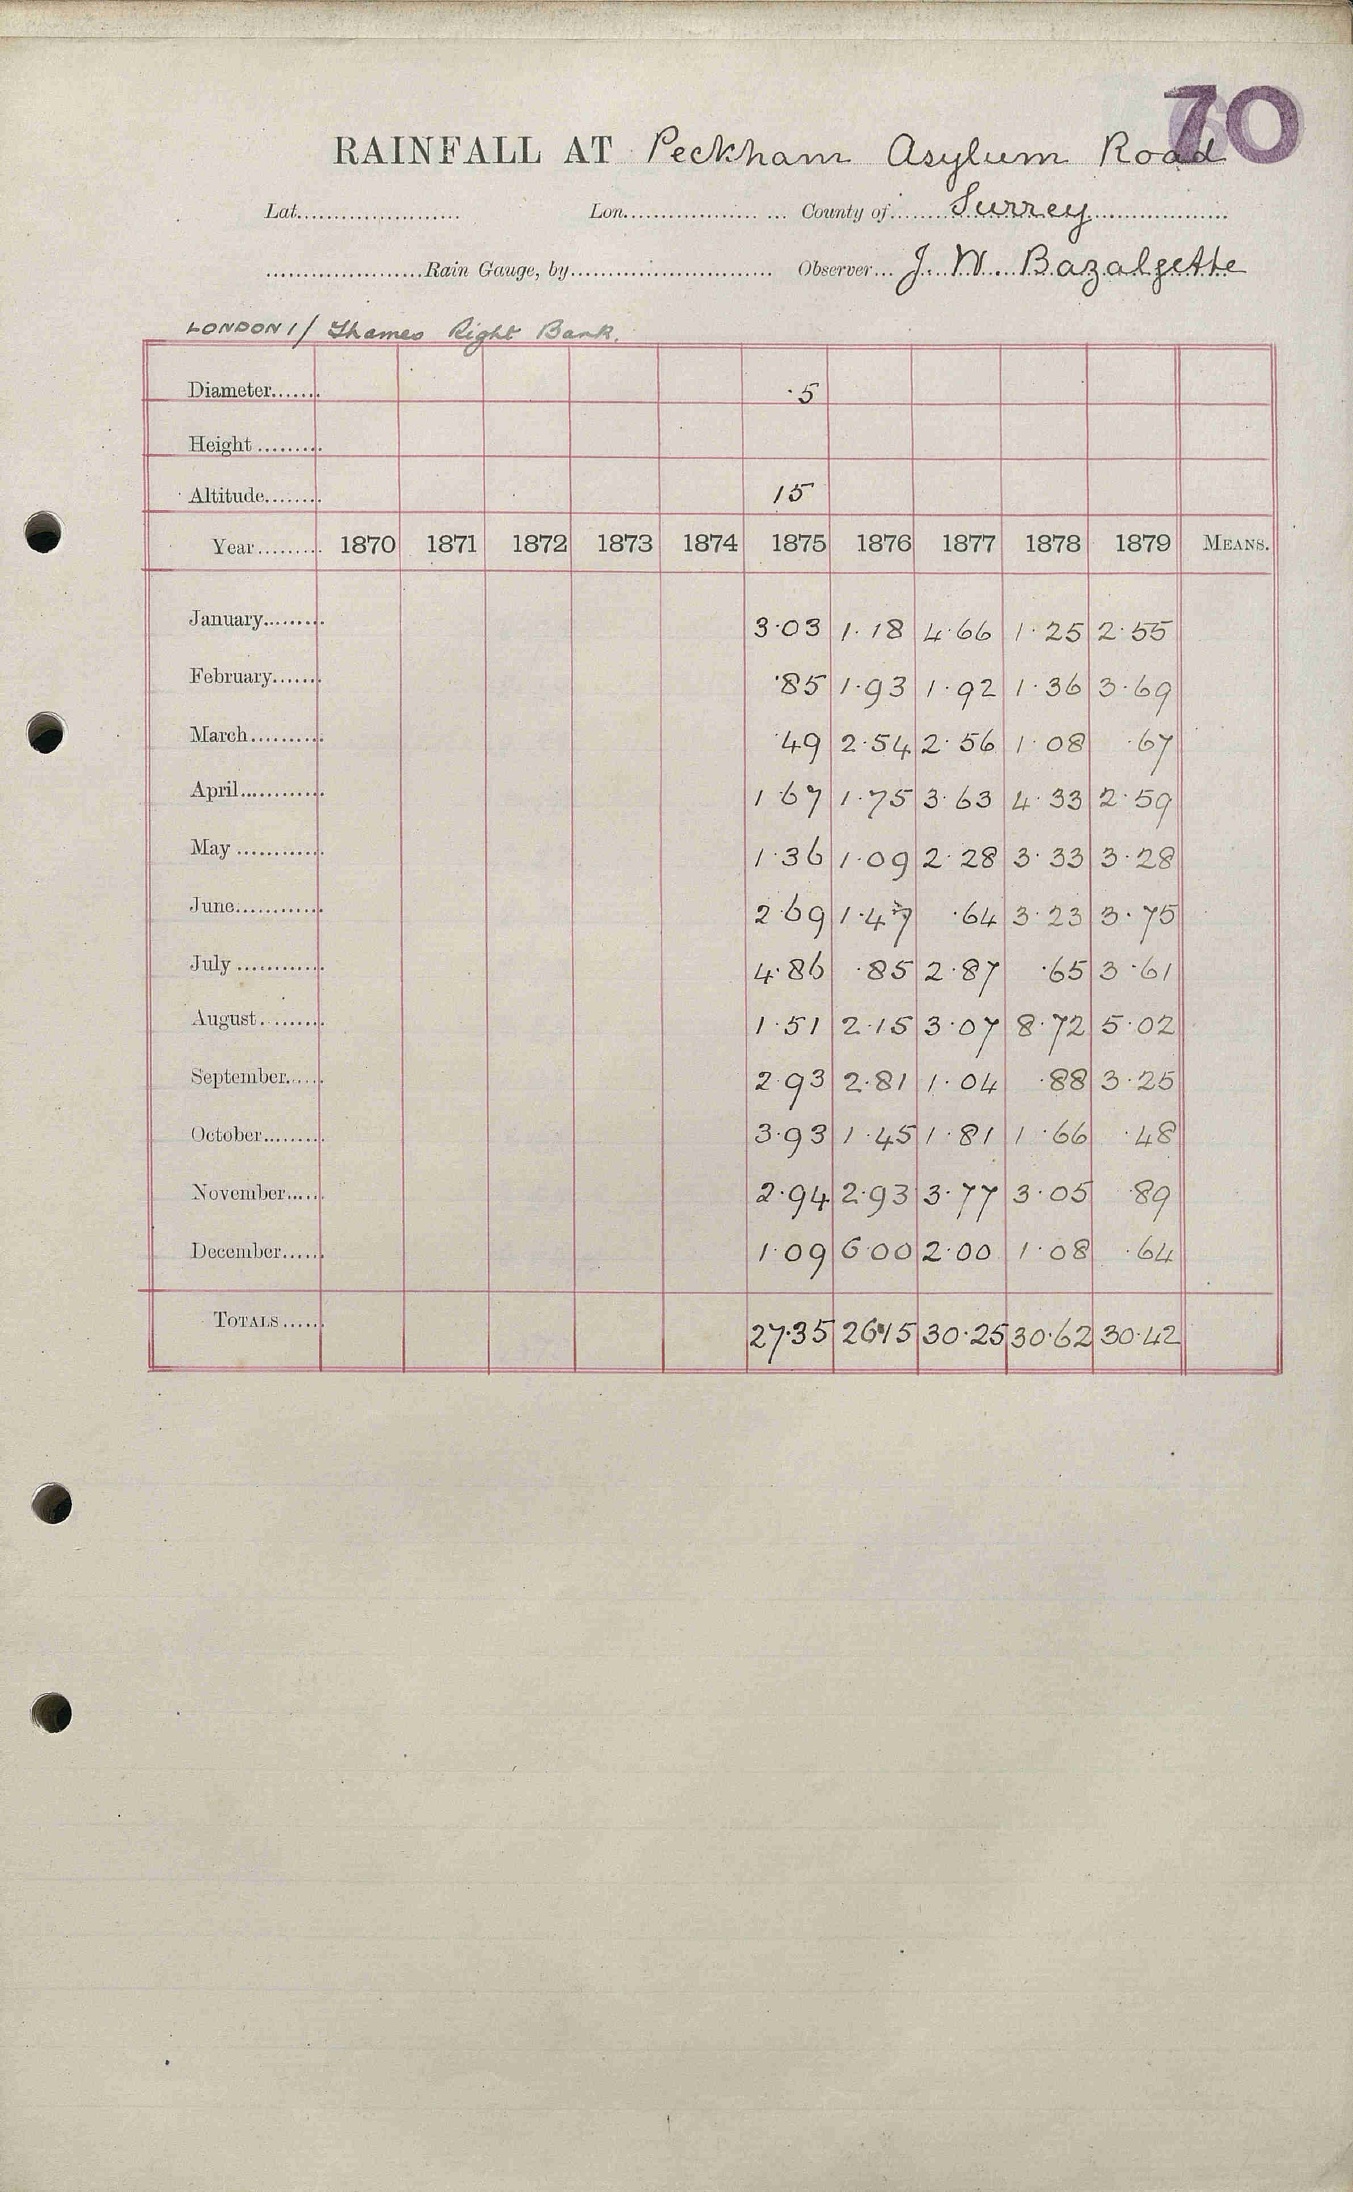 70
RAINFALL AT Peckham Asylum Road
Lat...................... Lon................... ... County of........Surrey....................
.....................Rain Gauge, by........................... Observer...J. W. Bazalgette
LONDON 1/ Thames Right Bank.
Diameter....... ·5
Height .........
Altitude........ 15
Year......... 1870 1871 1872 1873 1874 1875 1876 1877 1878 1879 MEANS.
January......... 3·03 1·18 4·66 1·25 2·55
February....... ·85 1·93 1·92 1·36 3·69
March.......... ·49 2·54 2·56 1·08 ·67
April............ 1·67 1·75 3·63 4·33 2·59
May ............ 1·36 1·09 2·28 3·33 3·28
June............ 2·69 1·47 ·64 3·23 3·75
July ............ 4·86 ·85 2·87 ·65 3·61
August......... 1·51 2·15 3·07 8·72 5·02
September...... 2·93 2·81 1·04 ·88 3·25
October......... 3·93 1·45 1·81 1·66 ·48
November...... 2·94 2·93 3·77 3·05 ·89
December...... 1·09 6·00 2·00 1·08 ·64
TOTALS...... 27·35 26·15 30·25 30·62 30·42